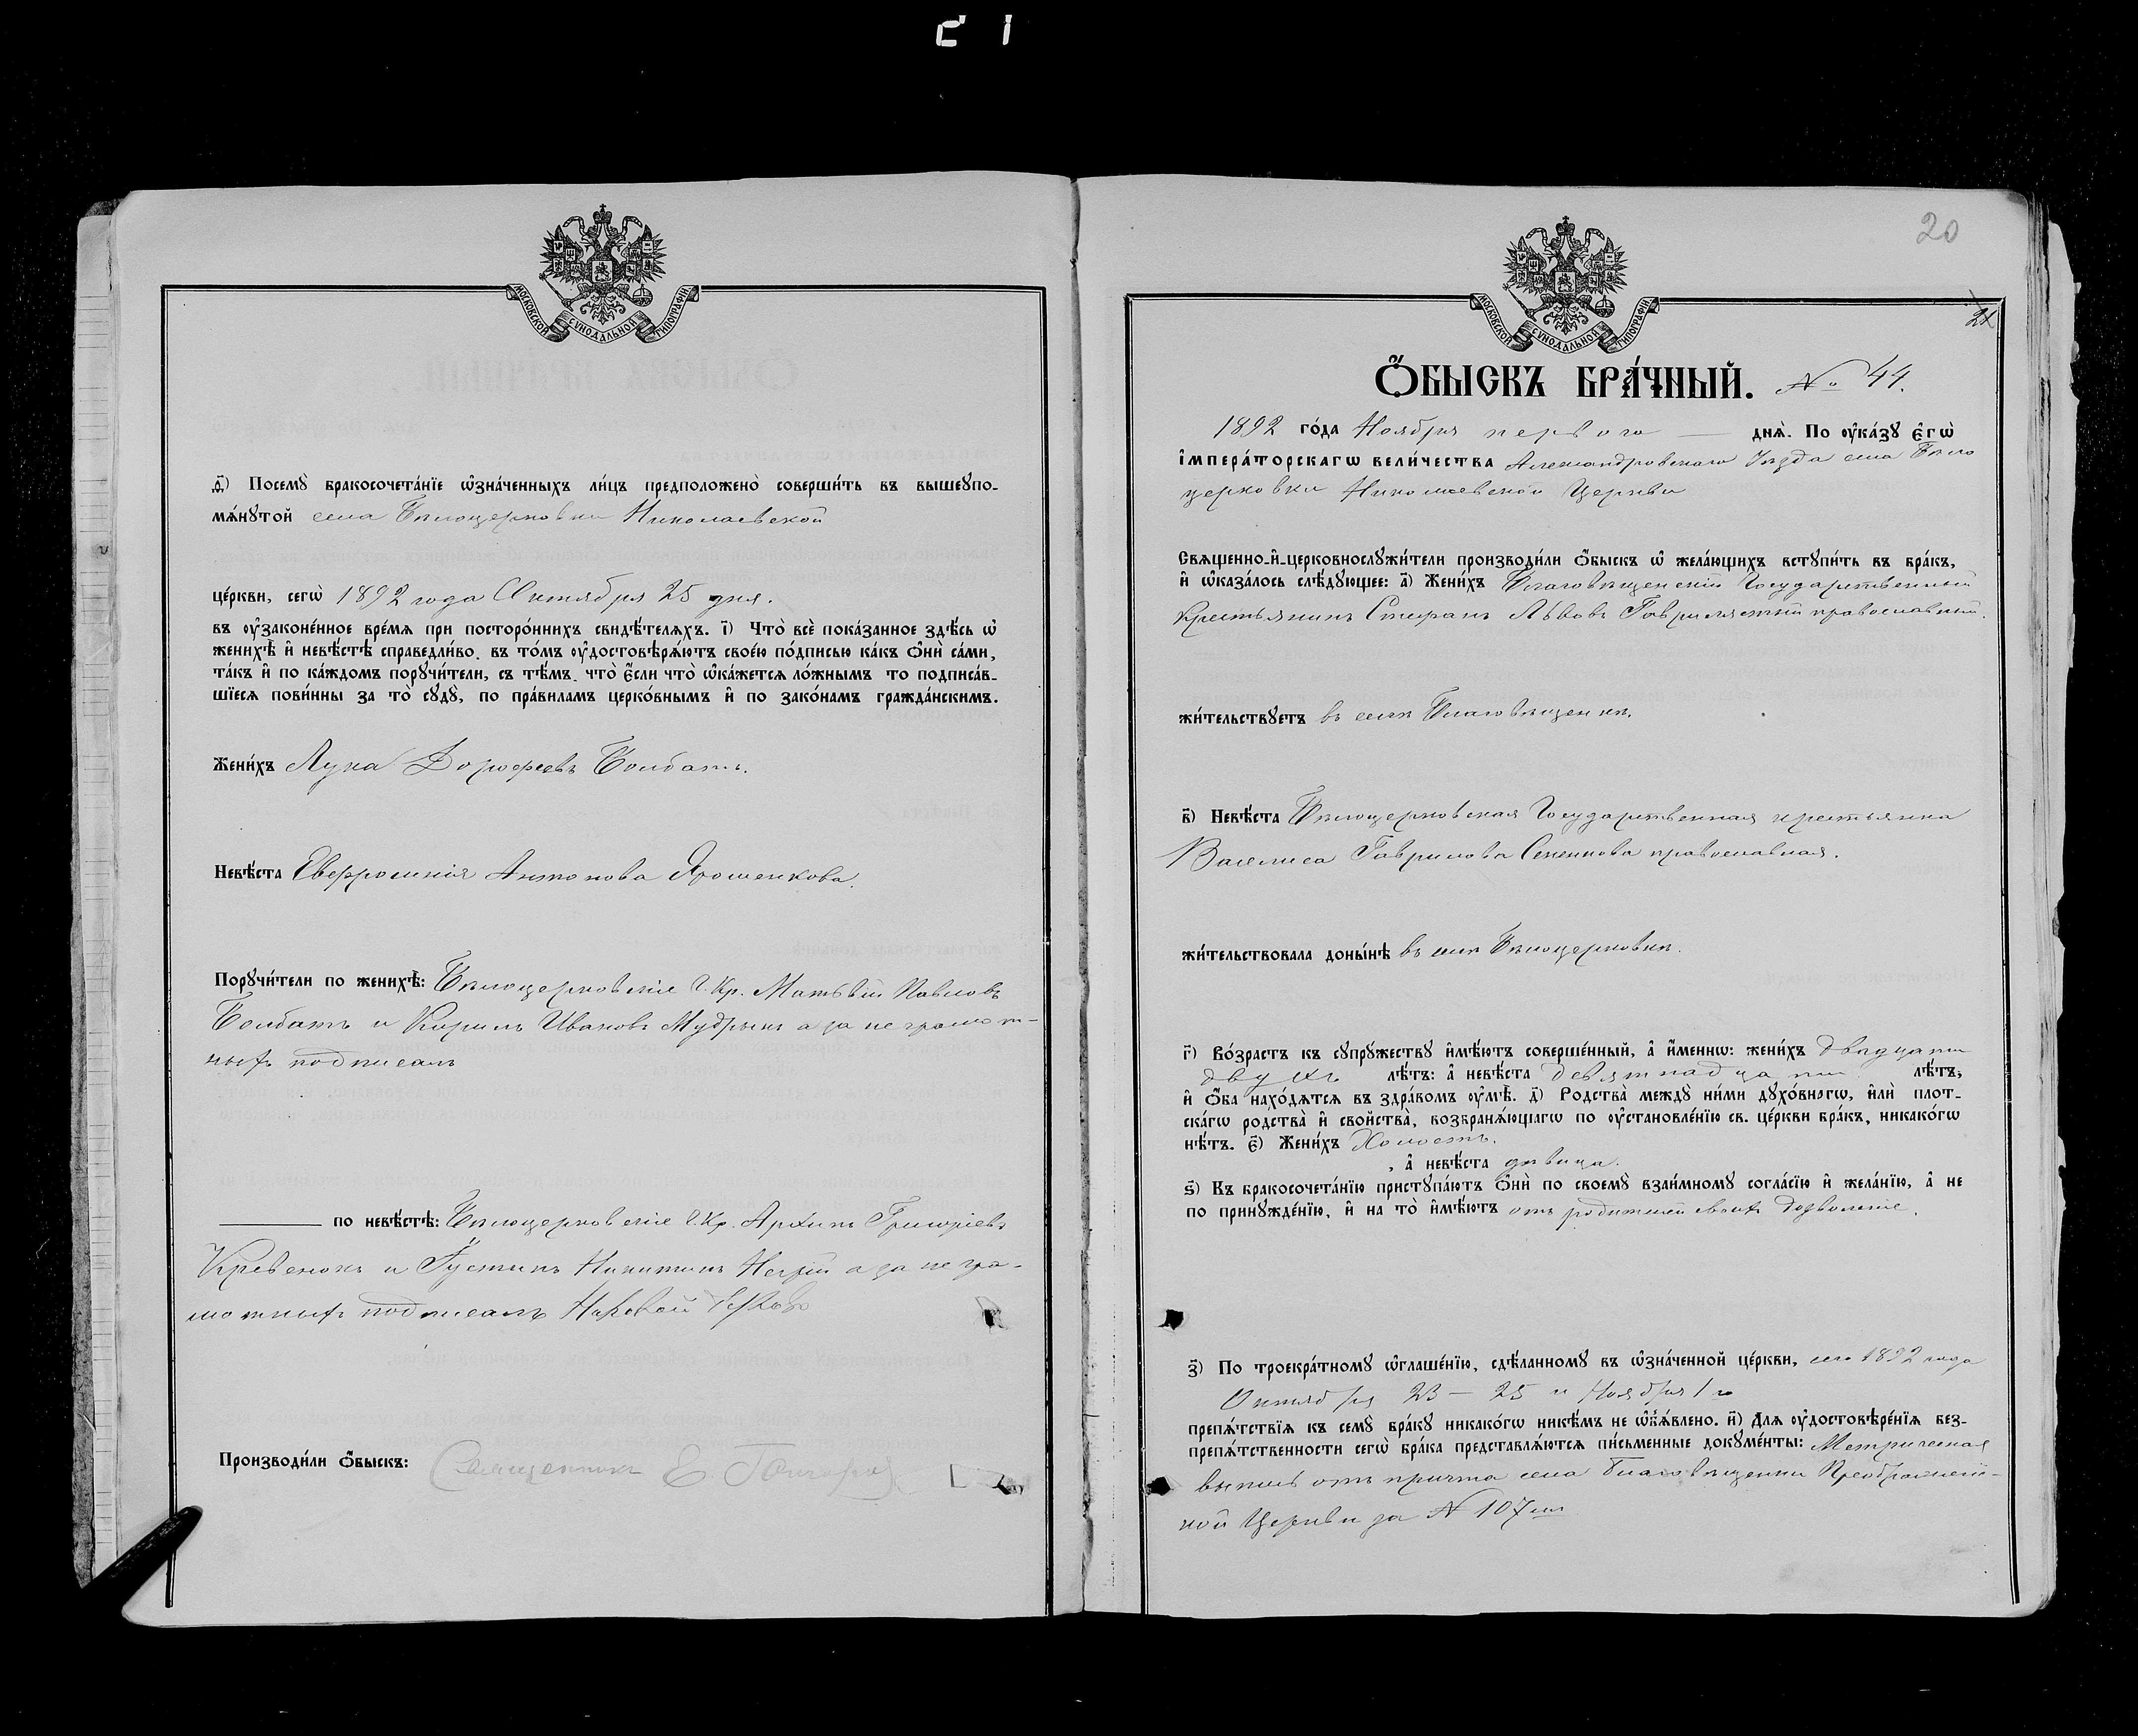 21
МОСКОВСКОЙ СѴНОДАЛЬНОЙ ТИПОГРАФІИ
ѳ҃) Посемꙋ̀ бракосочета́нїе ѡ҆зна́ченныхъ ли́цъ предположено̀ соверши́ть въ вышеꙋпо-
мѧ́нꙋтой села Бѣлоцерковки Николаевской
це́ркви, сегѡ̀ 1892 года Октября 25 дня.
въ ᲂу҆законе́нное вре́мѧ при посторо́ннихъ свидѣ́телѧхъ. і҃) Что̀ всѐ пока́занное здѣ́сь ѡ҆
женихѣ̀ и҆ невѣ́стѣ справедли́во. въ то́мъ ᲂу҆достовѣрѧ́ютъ свое́ю по́дписью ка́къ ѻ҆нѝ са́ми,
та́къ и҆ по ка́ждомъ порꙋчи́тели, съ тѣ́мъ. что̀ є҆́сли что̀ ѡ҆ка́жетсѧ ло́жнымъ то подписа́в-
шїесѧ пови́нны за то̀ сꙋдꙋ̀, по пра́виламъ церко́внымъ и҆ по зако́намъ гражда́нскимъ.
Жени́хъ Лука Дорофеевъ Болбатъ.
Невѣ́ста Евфросинія Антонова Ярошенкова.
Порꙋчи́тели по женихѣ̀: Бѣлоцерковскіе Г. Кр. Матвѣй Павловъ
Болбатъ и Кирилъ Ивановъ Мудрыкъ а за не грамот-
ныхъ подписалъ
по невѣ́стѣ: Бѣлоцерковскіе Г. Кр. Архипъ Григоріевъ
Кривенокъ и Густинъ Никитинъ а за не гра-
мотныхъ подписалъ
Производи́ли ѻ҆́быскъ: Священникъ Е.
20
21
МОСКОВСКОЙ СѴНОДАЛЬНОЙ ТИПОГРАФІИ
Ѻ҆́БЫСКЪ БРА́ЧНЫЙ. № 44.
1892 го́да Ноября перваго днѧ̀. По ᲂу҆ка́зꙋ є҆гѡ̀
і҆мпера́торскагѡ вели́чества Александровского Уѣзда села Бѣло
церковки Николаевской Церкви
Свѧще́нно-и҆-церковнослꙋжи́тели производи́ли ѻ҆́быскъ ѡ҆ жела́ющихъ встꙋпи́ть въ бра́къ,
и҆ ѡ҆каза́лось слѣ́дꙋющее: а҃) Жени́хъ Благовѣщенскій Государственный
Крестьянинъ Стефанъ Львовъ православный.
жи́тельствꙋетъ въ селѣ Благовѣщенкѣ.
в҃) Невѣ́ста Бѣлоцерковская Государственная крестьянка
Василиса Гаврилова Семенкова православная.
жи́тельствовала доны́нѣ въ селѣ Бѣлоцерковкѣ.
г҃) Во́зрастъ къ сꙋпрꙋ́жествꙋ и҆мѣ́ютъ соверше́нный, а҆ и҆́меннѡ: жени́хъ двадцати
двухъ лѣ́тъ: а҆ невѣ́ста девятнадцати лѣ́тъ,
и҆ ѻ҆́ба нахо́дѧтсѧ въ здра́вомъ ᲂу҆мѣ̀. д҃) Родства̀ междꙋ̀ ни́ми дꙋхо́внагѡ, и҆лѝ плот-
ска́гѡ родства̀ и҆ сво́йства̀, возбранѧ́ющагѡ по ᲂу҆становле́нїю св. це́ркви бра́къ, никако́гѡ
нѣ́тъ. є҃) Жени́хъ Холостъ.
, а҆ невѣ́ста дѣвица.
ѕ҃) Къ бракосочета́нїю пристꙋпа́ютъ ѻ҆нѝ по своемꙋ̀ взаи́мномꙋ согла́сїю и҆ жела́нїю, а҆ не
по принꙋжде́нїю, и҆ на то̀ и҆мѣ́ютъ отъ родителей своихъ дозволеніе.
з҃) По троекра́тномꙋ ѡ҆глаше́нїю, сдѣ́ланномꙋ въ ѡ҆зна́ченной це́ркви, сего 1892 года
Октября 23 – 25 и Ноября 1 го
препѧ́тствїѧ къ семꙋ̀ бра́кꙋ никако́гѡ никѣ́мъ не ѡ҆б̾ѧ́влено. и҃) Длѧ ᲂу҆достовѣре́нїѧ без-
препѧ́тственности сегѡ̀ бра́ка представлѧ́ютсѧ пи́сьменные докꙋме́нты: Метрическая
выпись отъ причта села Благовѣщенки Преображен-
ной Церкви за № 107